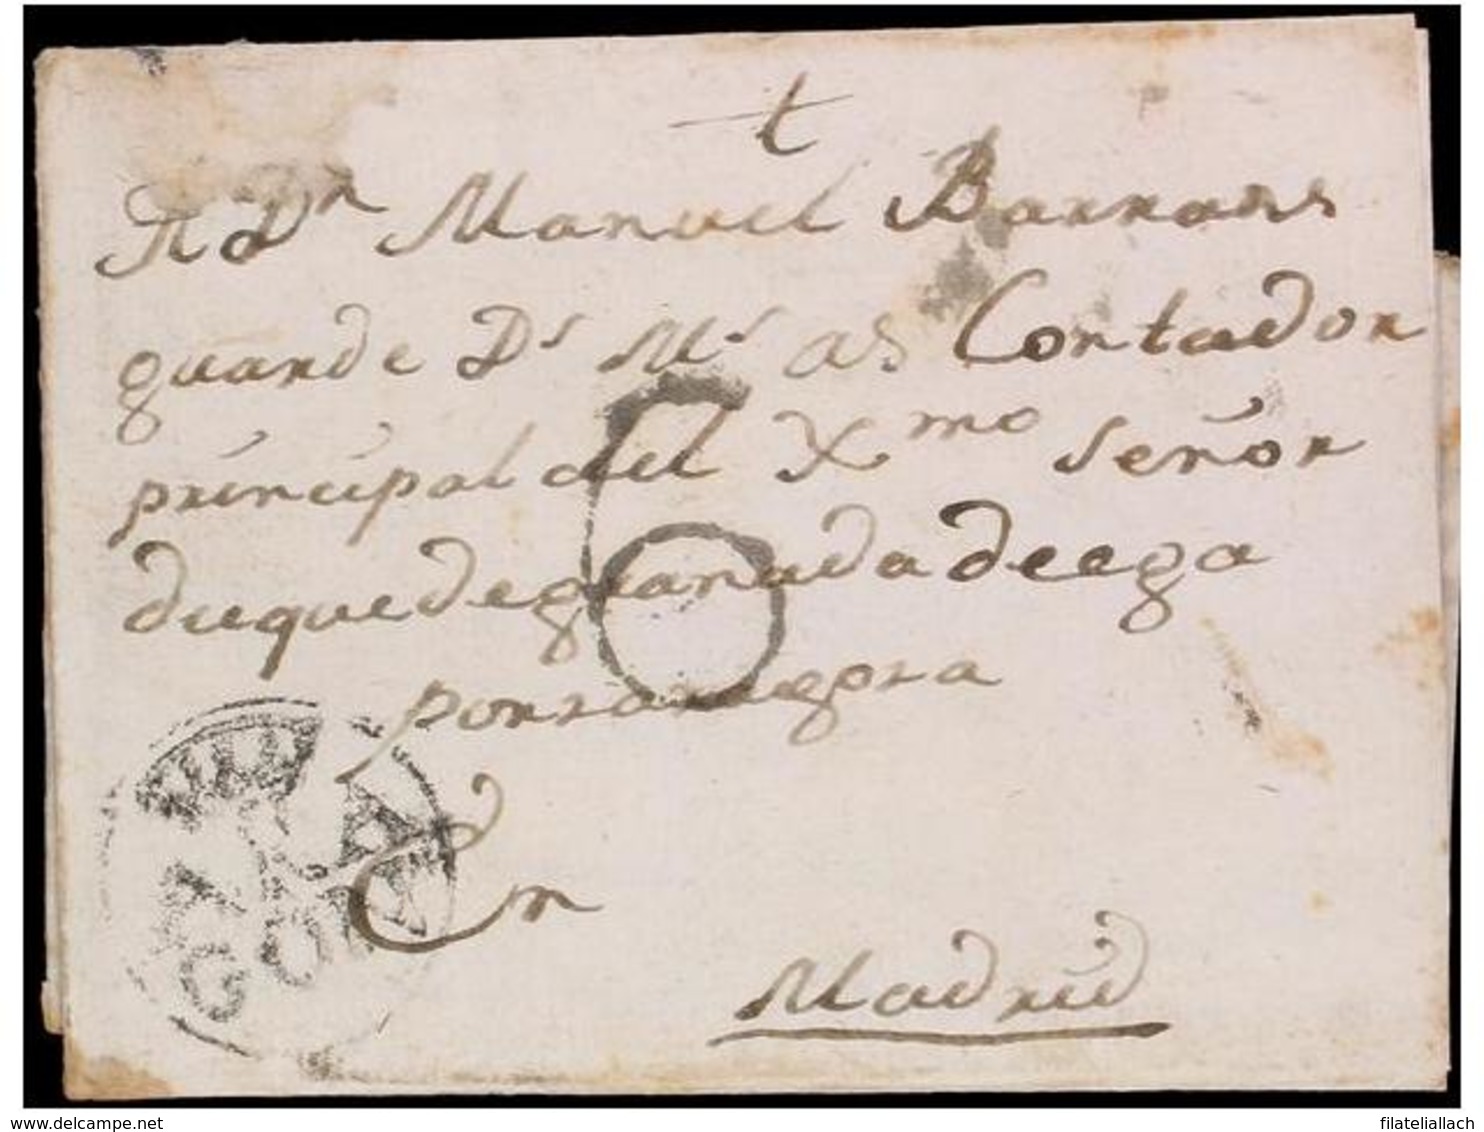 t
A Dn Manuel Barrans
guarde Ds Ms as Contador
principal del Xmo señor
duque de granada de ega
por zaragoza
6
En
Madrid
www.delcampe.net
filateliallach